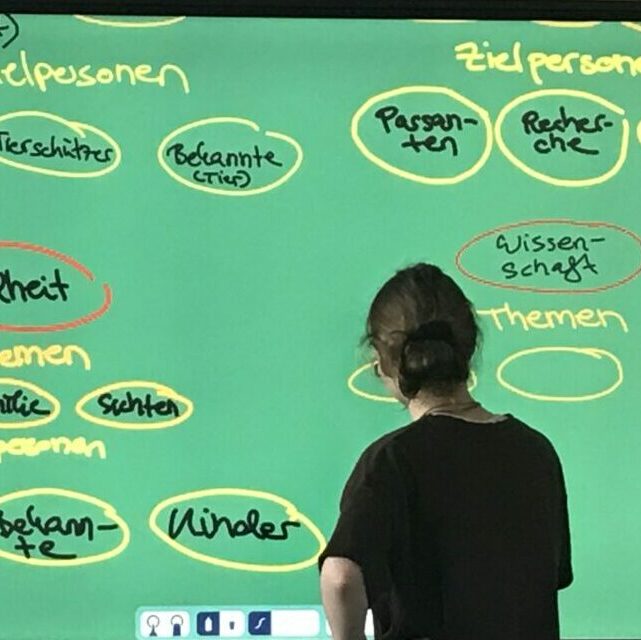 elpersonen
Zielperson
Tierschützer
Bekannte
(Tier)
Passan-
ten
Recher-
che
heit
Wissen-
schaft
emen
Themen
milie
Suchten
personen
Bekann-
te
Kinder